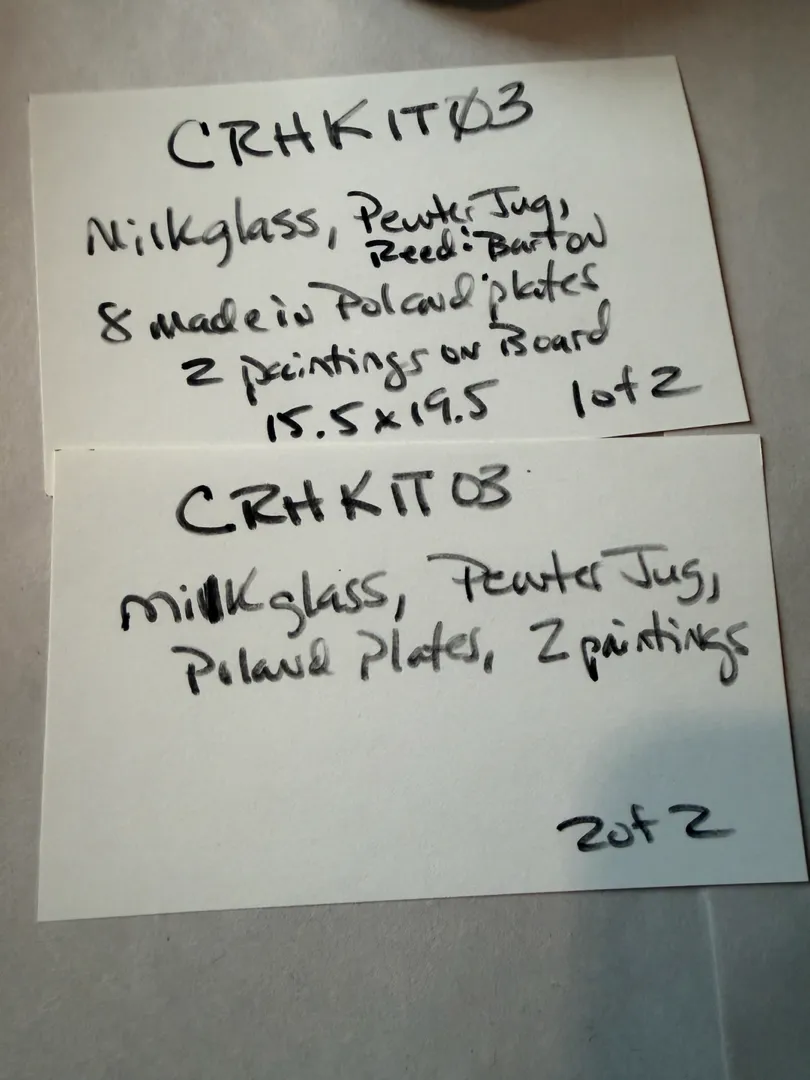 CRHKIT03
Milkglass, Pewter Jug,
Reed & Barton
8 made in Poland plates
2 paintings on Board
15.5x19.5 1 of 2
CRHKIT03
milkglass, Pewter Jug,
Poland Plates, 2 paintings
2 of 2